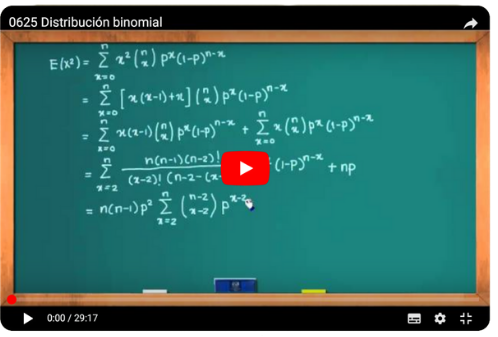 0625 Distribución binomial
E(x²) = Σ_{x=0}^{n} x² (n x) p^x (1-p)^{n-x}
= Σ_{x=0}^{n} [x(x-1)+x] (n x) p^x (1-p)^{n-x}
= Σ_{x=0}^{n} x(x-1) (n x) p^x (1-p)^{n-x} + Σ_{x=0}^{n} x (n x) p^x (1-p)^{n-x}
= Σ_{x=2}^{n} n(n-1)(n-2)! / (x-2)! (n-2-(x- (1-p)^{n-x} + np
= n(n-1)p² Σ_{x=2}^{n} (n-2 x-2) p^{x-2}
0:00 / 29:17